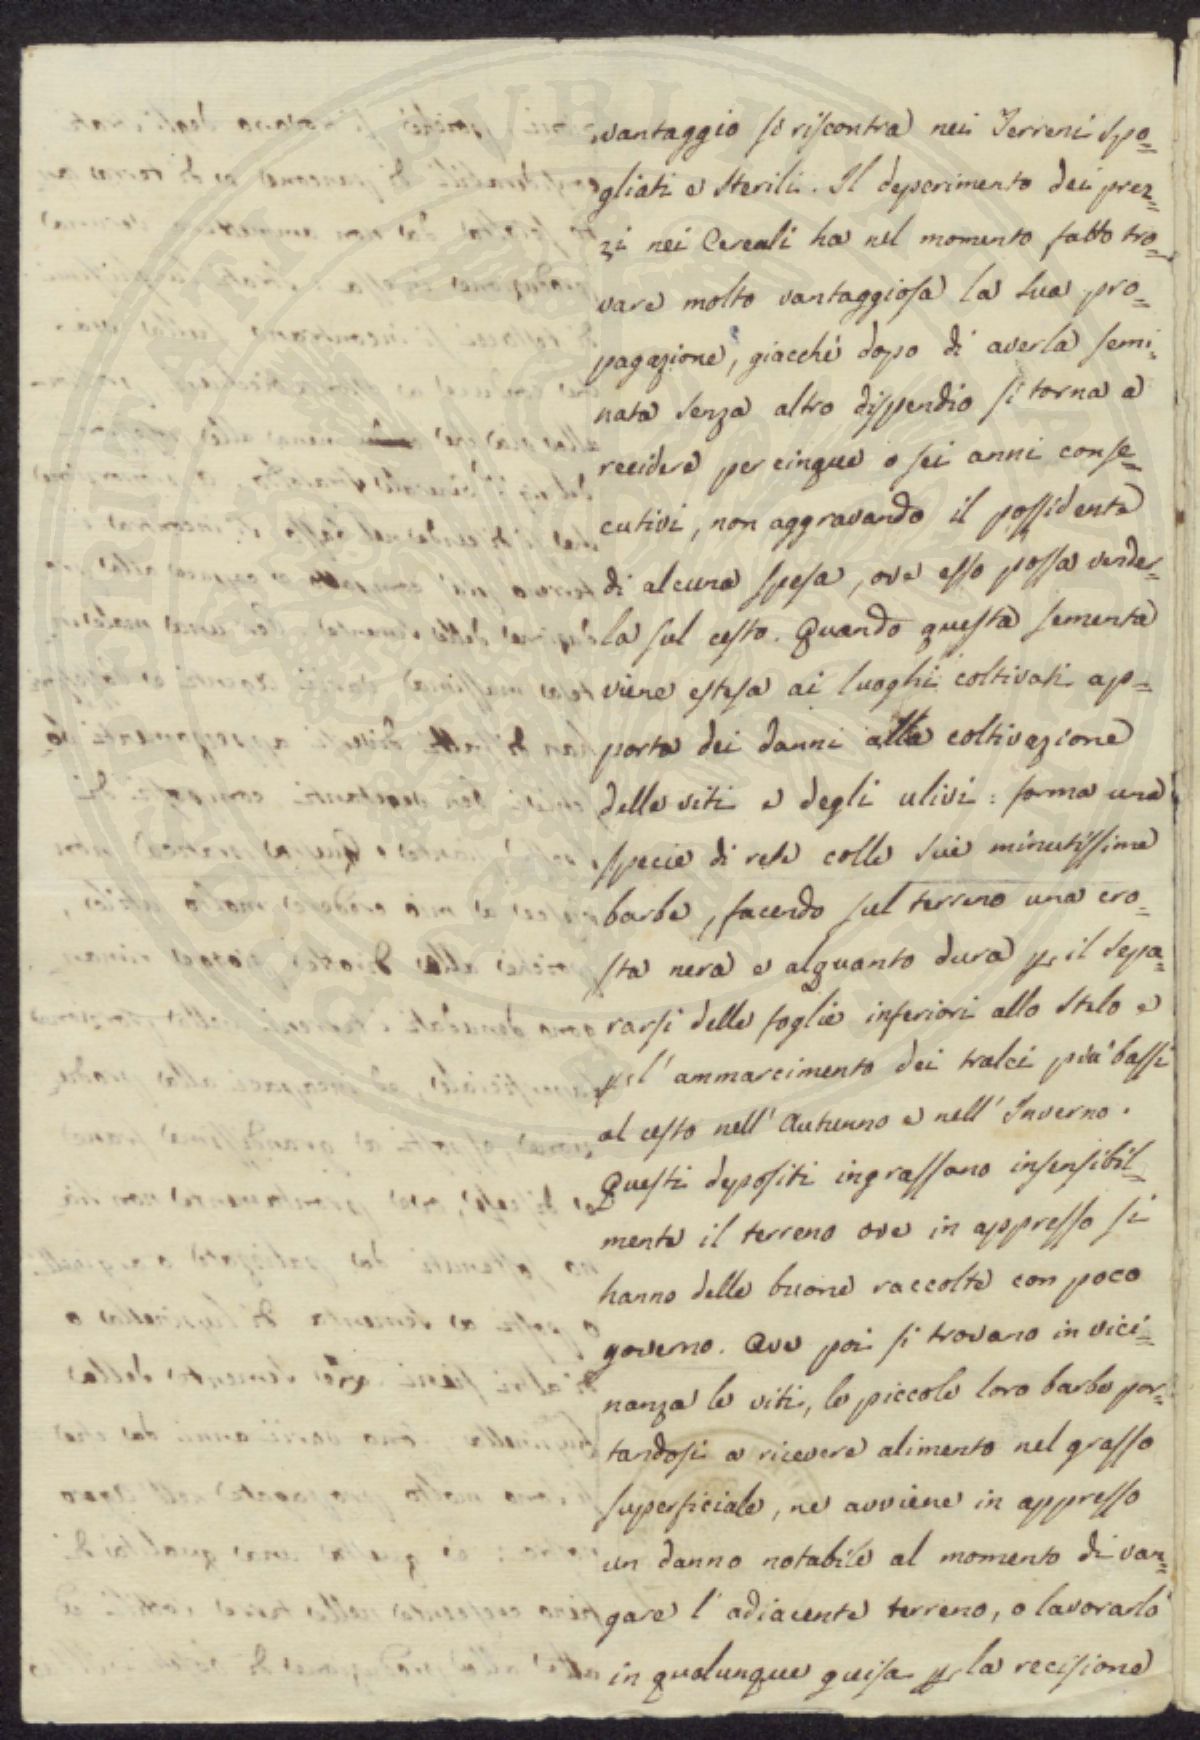 vantaggio si riscontra nei Terreni spo=
gliati e sterili. Il deperimento dei prez=
zi nei Cereali ha nel momento fatto tro=
vare molto vantaggiosa la sua pro=
pagazione, giacché dopo di averla semi=
nata senza altro dispendio si torna a
recidere per cinque o sei anni conse=
cutivi, non aggravando il possidente
di alcuna spesa, ove esso possa vender=
la sul cesto. Quando questa sementa
viene estesa ai luoghi coltivati ap=
porta dei danni alla coltivazione
delle viti e degli ulivi: forma una
specie di rete colle sue minutissime
barbe, facendo sul terreno una cro=
sta nera e alquanto dura p il sepa=
rarsi delle foglie inferiori allo stelo e
p l'ammarcimento dei tralci più bassi
al cesto nell'Autunno e nell'Inverno.
Questi depositi ingrassano insensibil=
mente il terreno ove in appresso si
hanno delle buone raccolte con poco
governo. Ove poi si trovano in vici=
nanza le viti, le piccole loro barbe por=
tandosi a ricevere alimento nel grasso
superficiale, ne avviene in appresso
un danno notabile al momento di van=
gare l'adiacente terreno, o lavorarlo
in qualunque guisa p la recisione